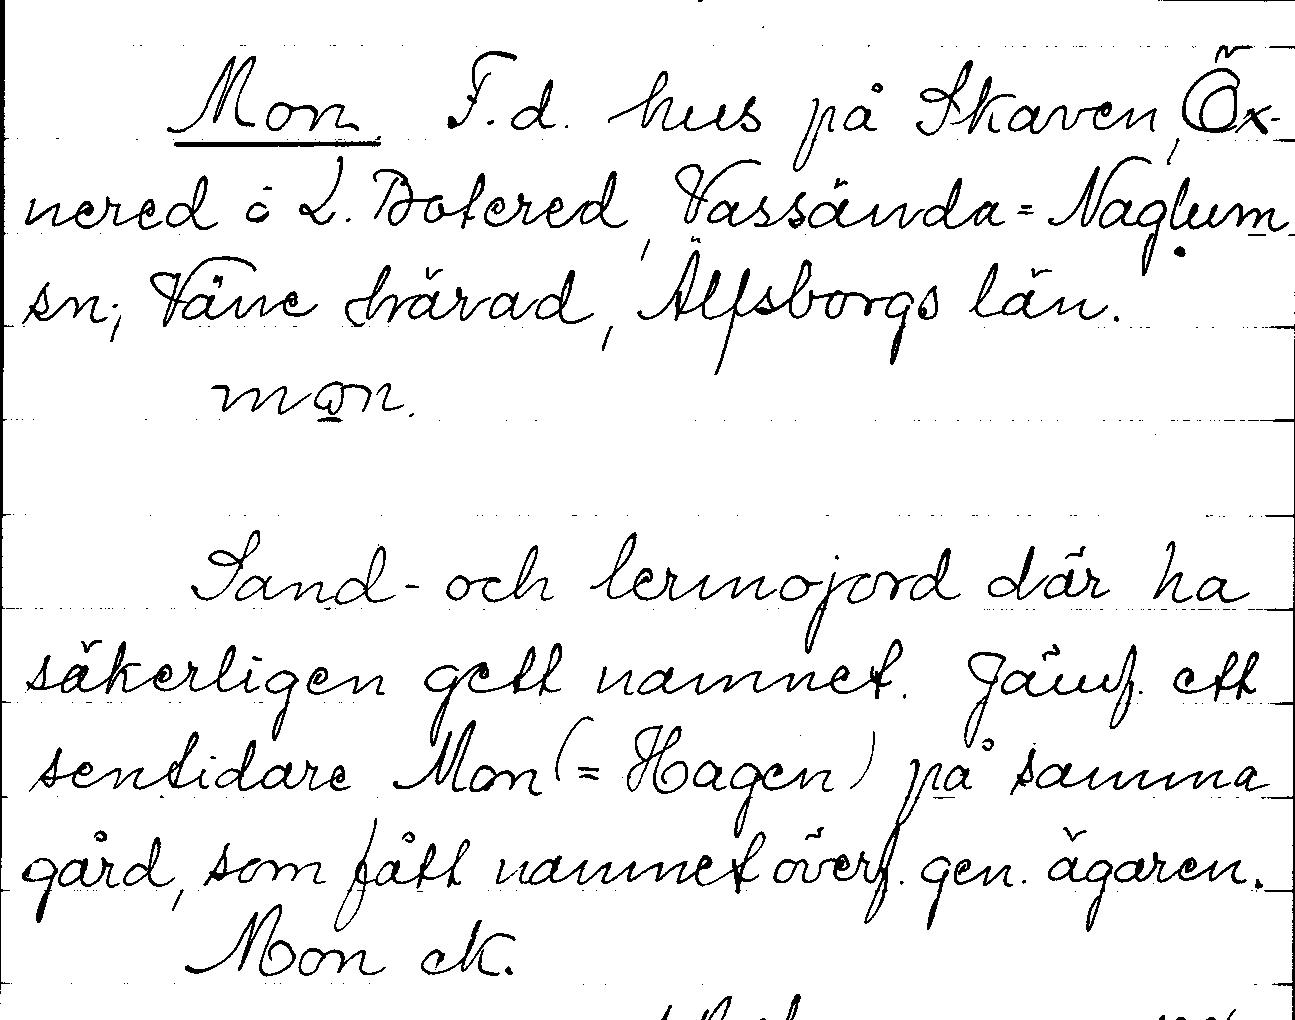 Mon. F.d. hus på Skaven, Öx-
nered i L. Botered, Vassända=Naglum
sn, Väne härad, Älfsborgs län.
mon.
Sand- och lermojord där ha
säkerligen gett namnet. Jämf. ett
sentidare Mon (= Hagen) på samma
gård, som fått namnet överf. gen. ägaren.
Mon ek.